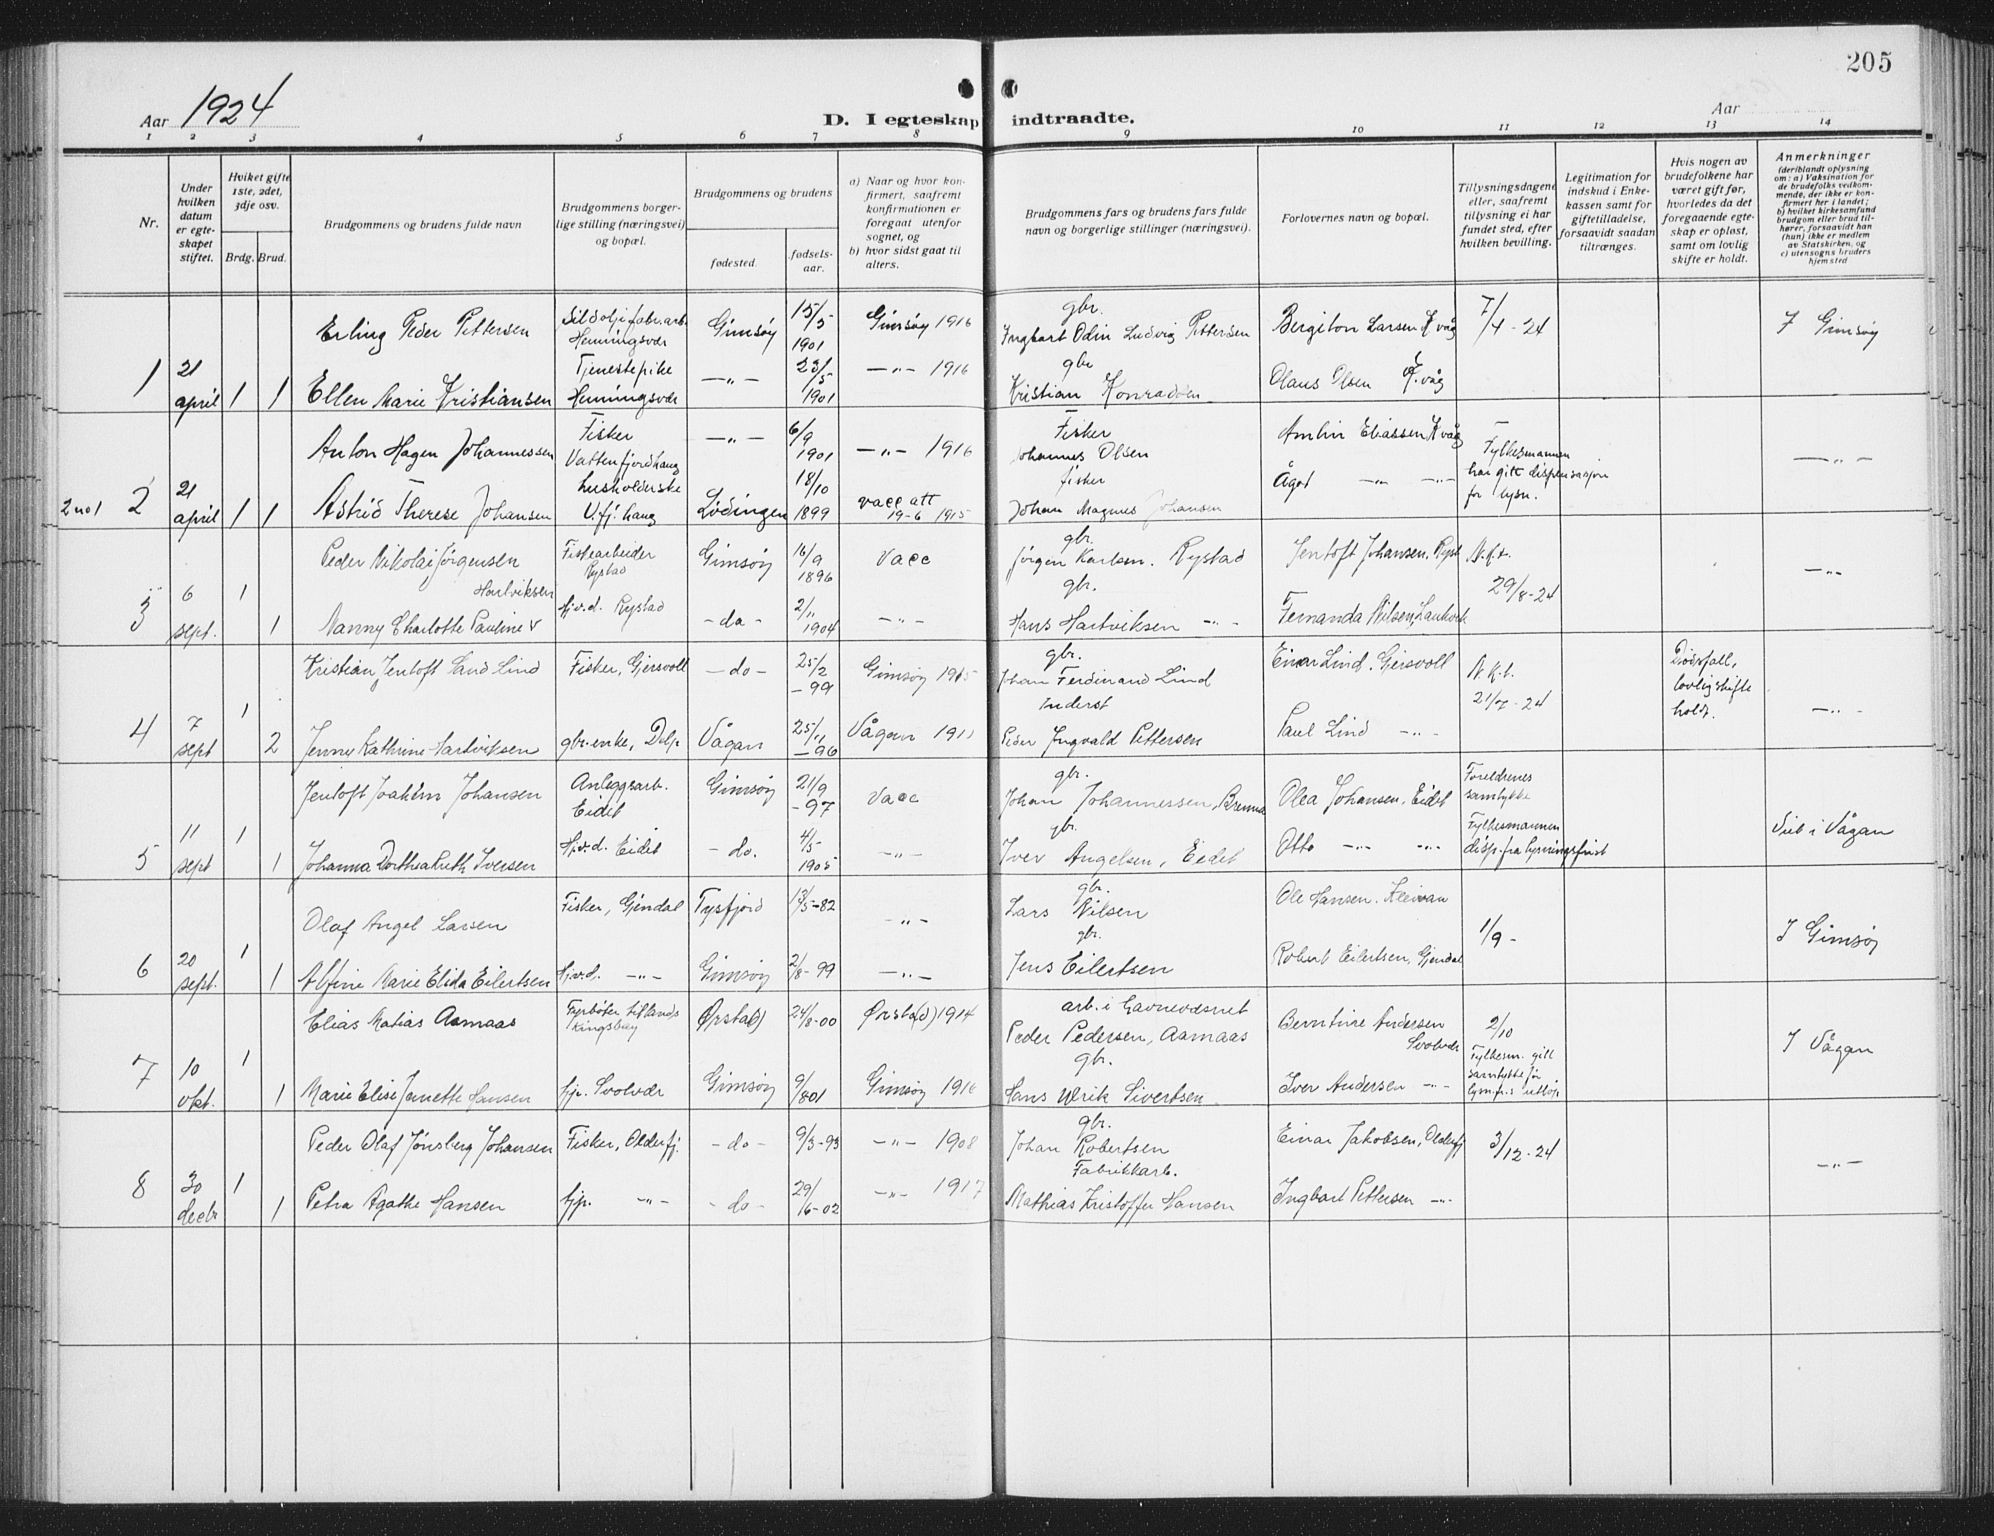 205
Aar 1924
D. I egteskap indtraadte.
Aar
1 2 3 4 5 6 7 8 9 10 11 12 13 14
Nr.
Under
hvilken
datum
er egte-
skapet
stiftet.
Hviket gifte
1ste, 2det,
3dje osv.
Brdg. Brud.
Brudgommens og brudens fulde navn
Brudgommens borger-
lige stilling (næringsvei)
og bopæl.
Brudgommens og brudens
fødested.
fødsels-
aar.
a) Naar og hvor kon-
firmert, saafremt
konfirmationen er
foregaat utenfor
sognet, og
b) hvor sidst gaat til
alters.
Brudgommens fars og brudens fars fulde
navn og borgerlige stillinger (næringsvei).
Forlovernes navn og bopæl.
Tillysningsdagene
eller, saafremt
tillysning ei har
fundet sted, efter
hvilken bevilling.
Legitimation for
indskud i Enke-
kassen samt for
giftetilladelse,
forsaavidt saadan
tiltrænges.
Hvis nogen av
brudefolkene har
været gift før,
hvorledes da det
foregaaende egte-
skap er opløst,
samt om lovlig
skifte er holdt.
Anmerkninger
(deriblandt oplysning
om: a) Vaksination for
de brudefolks vedkom-
mende, der ikke er kon-
firmert her i landet;
b) hvilket kirkesamfund
brudgom eller brud til-
hører, forsaavidt han
(hun) ikke er medlem
av Statskirken, og
c) utensogns bruders
hjemsted
Erling Peder Pettersen
Sildoljefabr.arb.
Henningsvær
Gimsøy
15/5
1901
Gimsøy 1916
gbr.
Ingbart Odin Ludvig Pettersen
Bergiton Larsen K våg
7/4-24
I Gimsøy
1
21
april
1 1
Ellen Marie Kristiansen
Tjenestepike
Henningsvær
—„—
23/5
1901
—„— 1916
gbr
Kristian Konradsen
Olaus Olsen K.våg
Anton Hagen Johannessen
Fisker
Vattenfjordhaug
—„—
6/9
1901
—„— 1916
Fisker
Johannes Olsen
Amlin Eliassen K våg
Fylkesmannen
har gitt dispensasjon
for lysn.
—„—
2 no 1
2
21
april
1 1
Astrid Therese Johansen
husholderske
V.fj. haug
Lødingen
18/10
1899
vacc att
19-6 1915
fisker
Johan Magnus Johansen
Ågot —„— —„—
Peder Nikolai Jørgensen
Hartviksen
Fiskearbeider
Rystad
Gimsøy
16/9
1896
vacc
gbr.
Jørgen Karlsen. Rystad
Jentoft Johansen, Ryst
N.k.t.
29/8-24
—„—
3
6
sept.
1
1
Nanny Charlotte Pauline v
Hj.v.d. Rystad
- do -
2/11
1904
—„—
gbr.
Hans Hartviksen —„—
Fernanda Nilsen, Laukvik
Kristian Jentoft Sand Lind
Fisker, Gjersvoll
- do -
25/2
-99
Gimsøy 1915
gbr.
Johan Ferdinand Lind
Einar Lind. Gjersvoll
N.k.t.
21/7-24
Dødsfall,
lovlig skifte
holdt.
—„—
4
7
sept
1
2
Jenny Kathrine Hartviksen
gbr.enke, Delp
Vågan
25/11
-96
Vågan 1911
Inderst
Peder Ingvald Pettersen
Paul Lind —„—
Jentoft Joakim Johansen
Anleggsarb.
Eidet
Gimsøy
21/9
-97
vacc
gbr.
Johan Johannessen, Brenna
Olea Johansen, Eidet
Foreldrenes
samtykke
Fylkesmannen
disp. fra lysningsfrist
Viet i Vågan
5
11
sept
1
1
Johanna Dorthea Ruth Iversen
Hj.v.d. Eidet
- do.
4/5
1905
—„—
gbr.
Iver Angelsen, Eidet
Otto —„— —„—
Olaf Angel Larsen
Fisker, Gjendal
Tysfjord
13/5-82
—„—
gbr.
Lars Nilsen
Ole Hansen. Kleivan
1/9-
I Gimsøy
6
20
sept.
1
1
Alfine Marie Elida Eilertsen
Hj.v.d. —„—
Gimsøy
2/8-99
—„—
gbr.
Jens Eilertsen
Robert Eilertsen, Gjendal
Elias Matias Aamaas
Kingsbay
Ørsta(d)
24/8-00
Ørsta(d) 1914
arb. i havnevæsnet
Peder Pedersen, Aamaas
Berntine Andersen
Svolvær
2/10
Fylkesm. gitt
samtykke før
lysn.fris utløp
I Vågan
7
10
okt.
1
1
Marie Elise Jenette Hansen
hjp. Svolvær
Gimsøy
9/801
Gimsøy 1916
gbr.
Hans Ulrik Sivertsen
Iver Andersen —„—
Peder Olaf Jønsberg Johansen
Fisker, Olderfj.
- do -
9/3-93
—„— 1908
gbr.
Johan Robertsen
Einar Jakobsen, Olderfj
3/12-24
—„—
8
30
decbr
1
1
Petra Agathe Hansen
hjp. —„—
- do -
29/6-02
—„— 1917
Fabrikkarb.
Mathias Kristoffer Hansen
Ingbart Pettersen —„—